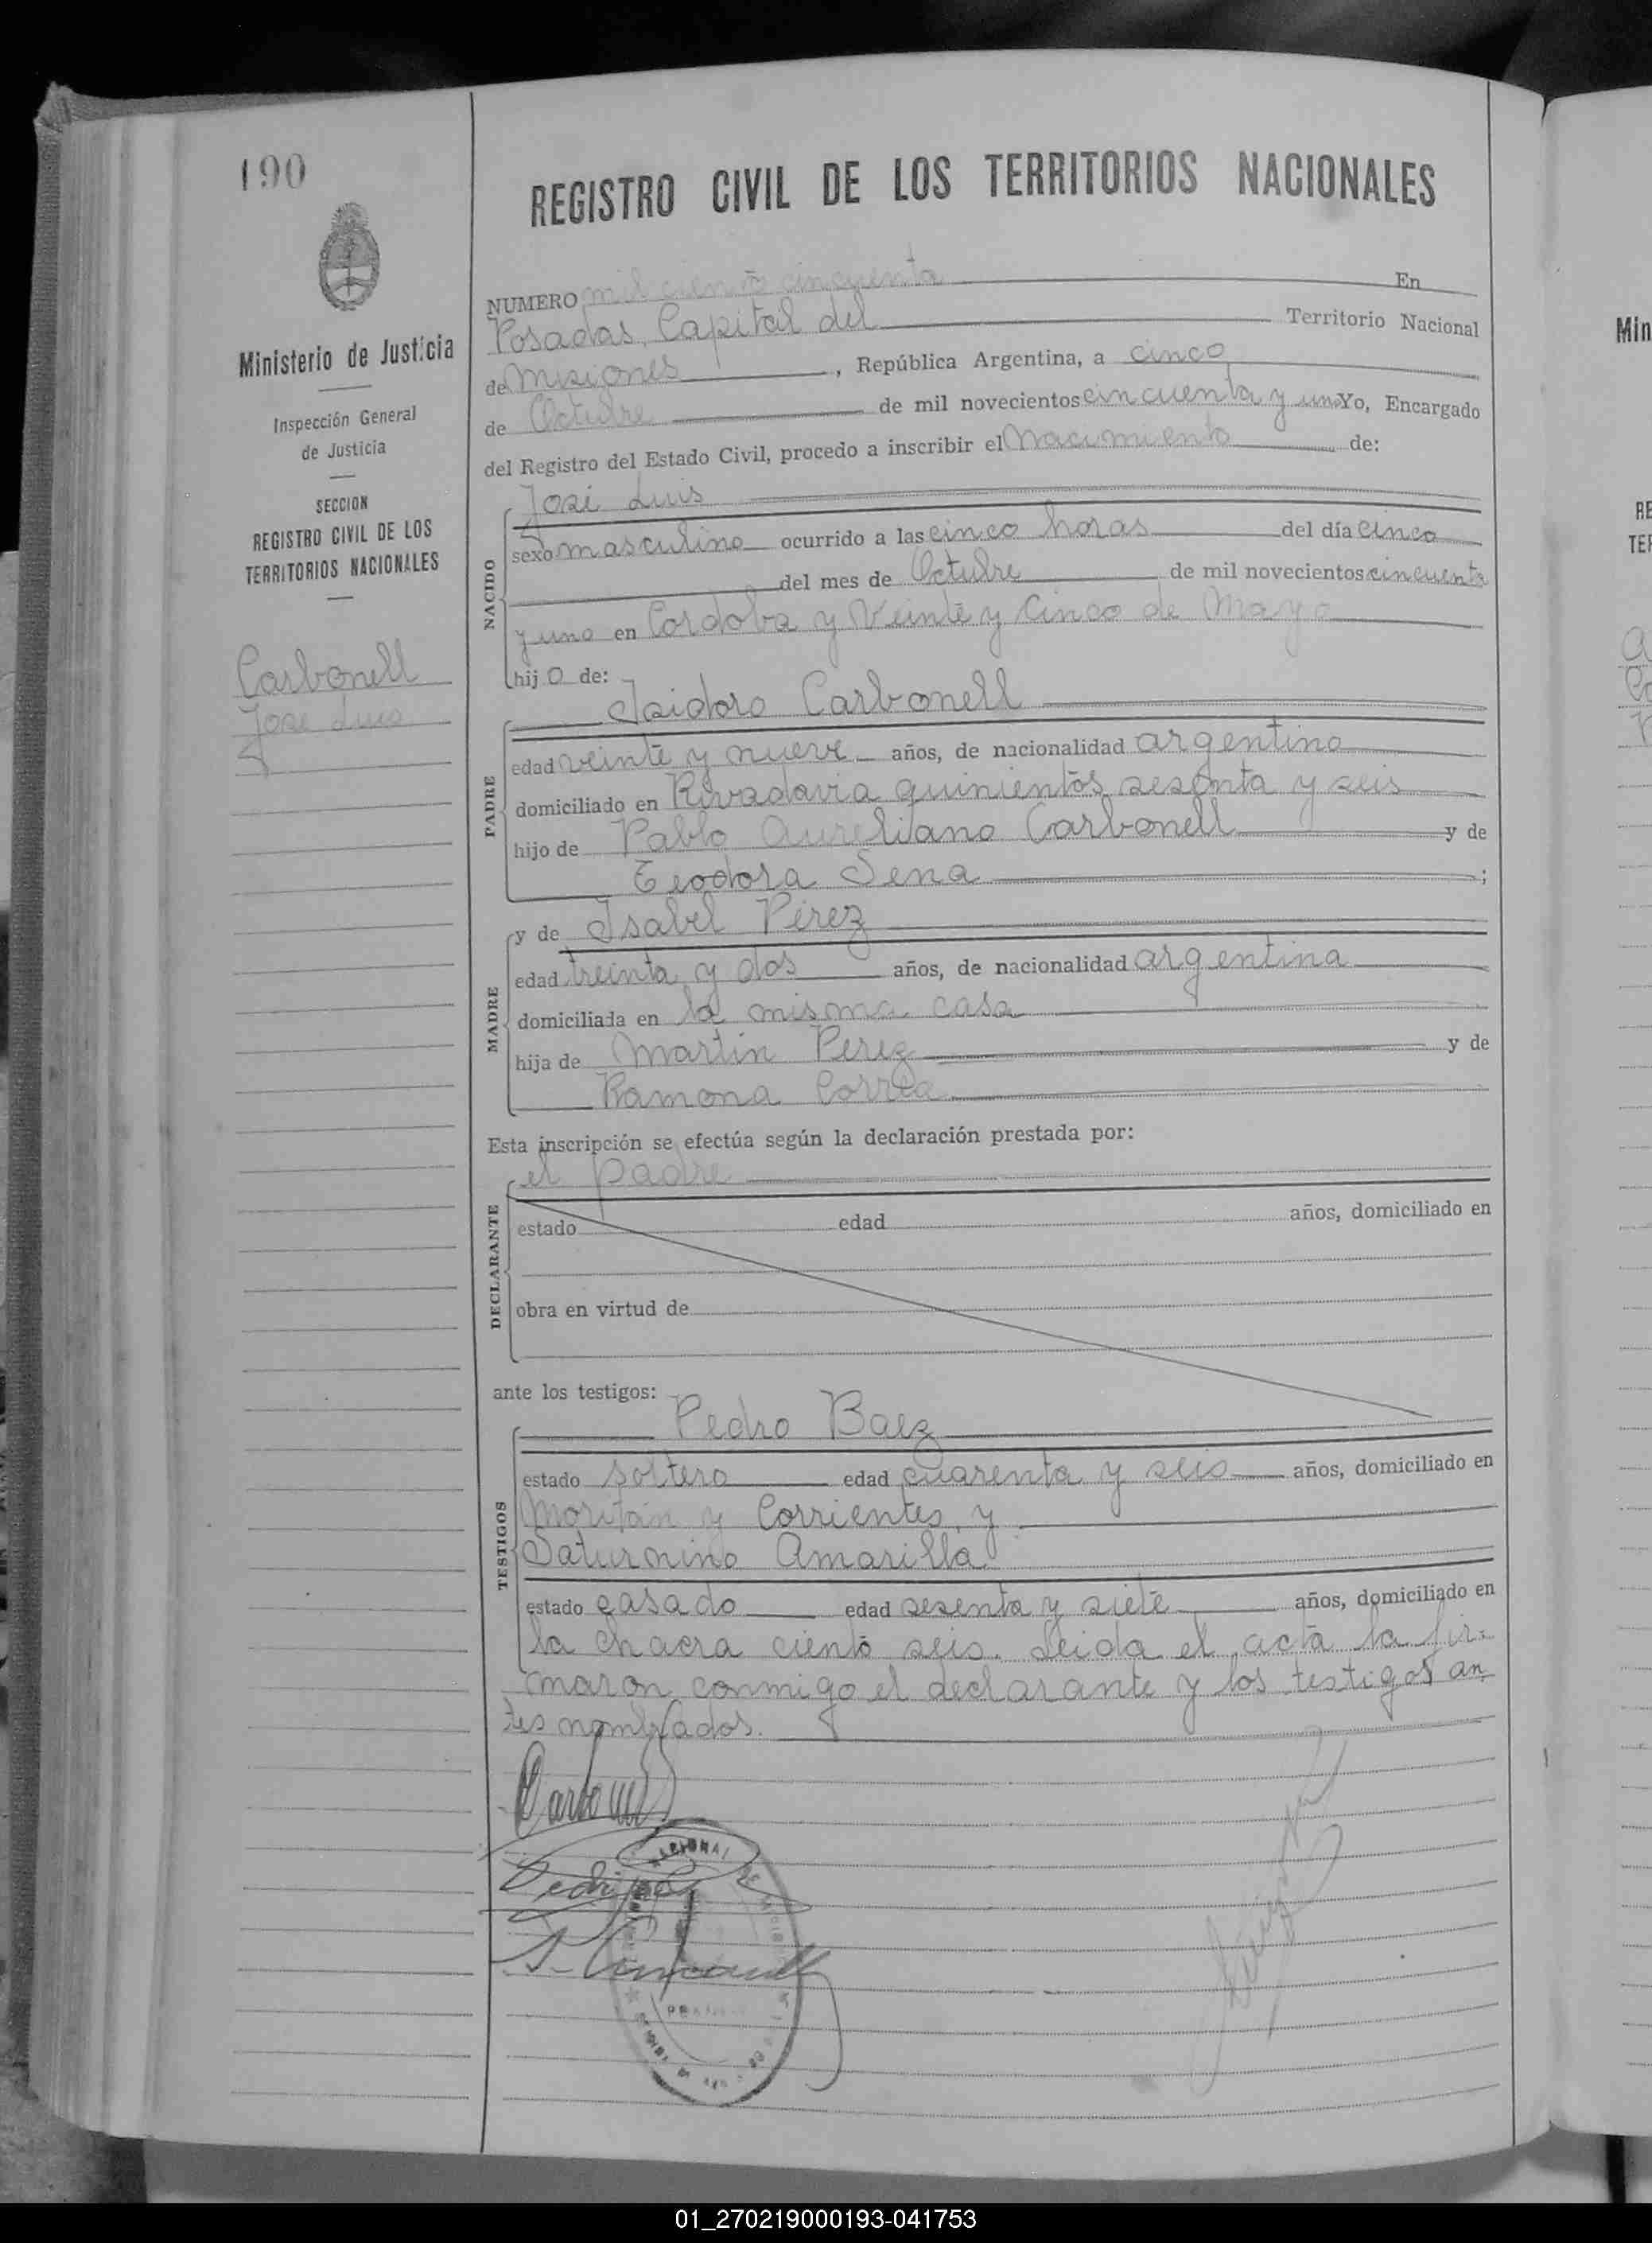 190
REGISTRO CIVIL DE LOS TERRITORIOS NACIONALES
Ministerio de Justicia
Inspección General
de Justicia
SECCION
REGISTRO CIVIL DE LOS
TERRITORIOS NACIONALES
Carbonell
José Luis
NUMERO mil ciento cincuenta En
Posadas, Capital del Territorio Nacional
de Misiones, República Argentina, a cinco
de Octubre de mil novecientos cincuenta y uno Yo, Encargado
del Registro del Estado Civil, procedo a inscribir el Nacimiento de:
NACIDO
José Luis
sexo masculino ocurrido a las cinco horas del día cinco
del mes de Octubre de mil novecientos cincuenta
y uno en Cordoba y Veinte y Cinco de Mayo
hijo de:
PADRE
Isidoro Carbonell
edad veinte y nueve años, de nacionalidad argentino
domiciliado en Rivadavia quinientos sesenta y seis
hijo de Pablo Aureliano Carbonell y de
Teodora Sena;
MADRE
y de Isabel Pérez
edad treinta y dos años, de nacionalidad argentina
domiciliada en la misma casa
hija de Martín Perez y de
Ramona Correa
Esta inscripción se efectúa según la declaración prestada por:
DECLARANTE
el padre
estado edad años, domiciliado en
obra en virtud de
ante los testigos:
TESTIGOS
Pedro Baez
estado soltero edad cuarenta y seis años, domiciliado en
Moritán y Corrientes, y
Saturnino Amarilla
estado casado edad sesenta y siete años, domiciliado en
la chacra ciento seis. Leida el acta la fir=
maron conmigo el declarante y los testigos an
tes nombrados.
Carbonell
01_270219000193-041753